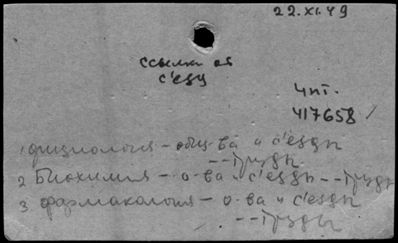 22.XI.49
ссылка об
съезд
Чит.
417658/
1 физиология - общ-ва и съезды
-- Труды
2 Биохимия - о-ва и съезды -- Труды
3 фармакология - о-ва и съезды
-- Труды